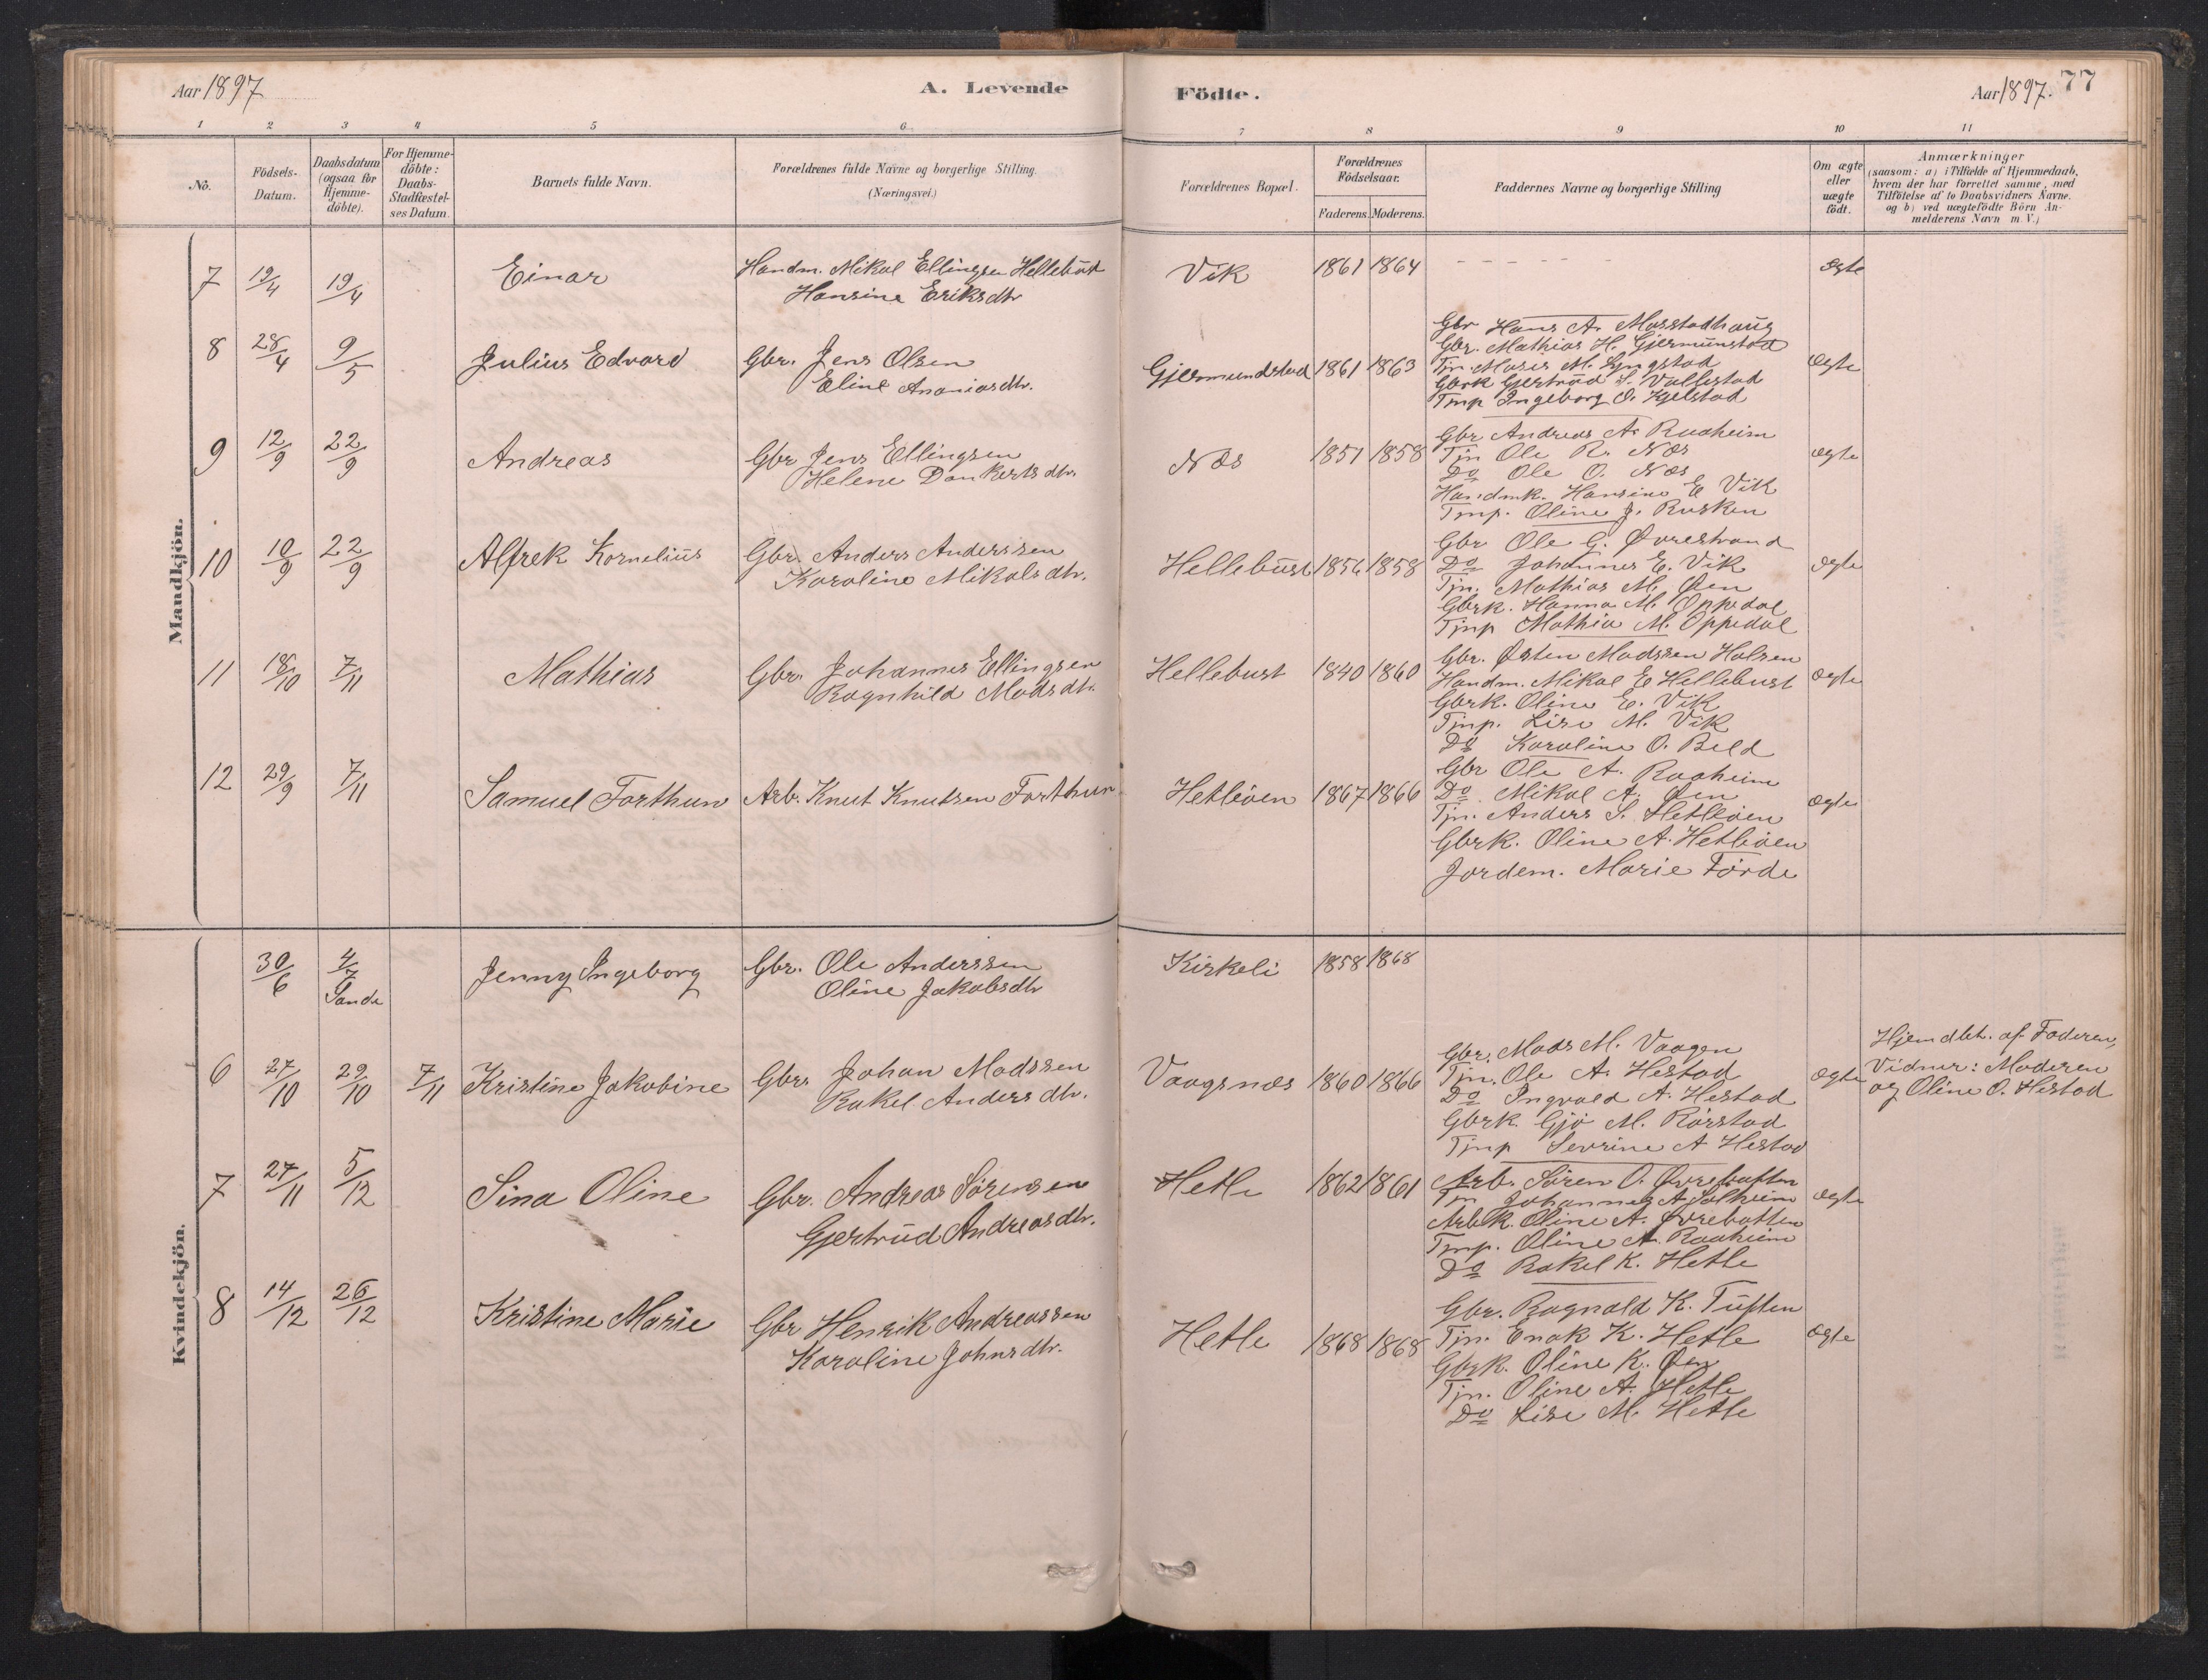 Aar 1897
A. Levende
Födte.
Aar 1897. 77
1 2 3 4 5 6 7 8 9 10 11
No.
Födsels-
Datum.
Daabsdatum
(ogsaa for
Hjemme-
döbte).
For Hjemme-
döbte:
Daabs-
Stadfæstel-
ses Datum.
Barnets fulde Navn.
Forældrenes fulde Navne og borgerlige Stilling.
(Næringsvei.)
Forældrenes Bopæl.
Forældrenes
Födselsaar.
Faderens. Moderens.
Faddernes Navne og borgerlige Stilling
Om ægte
eller
uægte
födt.
Anmærkninger
(saasom: a) i Tilfælde af Hjemmedaab,
hvem der har forrettet samme, med
Tilföielse af to Daabsvidners Navne.
og b) ved uægtefödte Börn An-
melderens Navn m. V.)
Mandkjön.
7 19/4 19/4 Einar Handm. Mikal Ellingsen Hellebust
Hansine Eriksdtr
Vik 1861 1864 - - - - - - ægte
8 28/4 9/5 Julius Edvard Gbr. Jens Olsen
Eline Ananiasdtr.
Gjermundstad 1861 1863 ægte
Gbr Hans A. Masstadhaug
Gbr. Mathias H. Gjermunstad
Tjn. Moses M. Lyngstad
Gbrk Gjertrud S. Vallestad
Tmp Ingeborg O. Kjelstad
9 12/9 22/9 Andreas Gbr Jens Ellingsen
Helene Dankertsdtr.
Næs 1851 1858 ægte
Gbr Andreas A. Raaheim
Tjn Ole R. Næs
Do Ole O. Næs
Handmk. Hansine E Vik
Tmp. Oline J. Rusken
10 10/9 22/9 Alfrek Kornelius Gbr. Anders Anderssen
Karoline Mikalsdtr.
Hellebust 1856 1858 ægte
Gbr Ole G. Øvrestrand
Do Johannes E. Vik
Tjn. Mathias M. Øen
Gbrk. Hanna M. Oppedal
Tjnp Mathia M. Oppedal
11 18/10 7/11 Mathias Gbr. Johannes Ellingsen
Ragnhild Madsdtr.
Hellebust 1840 1860 ægte
Gbr. Østen Madssen Halsen
Handm. Mikal E Hellebust
Gbrk. Oline E. Vik
Tjnp. Lise M. Vik
Do Karoline O. Beld
12 29/9 7/11 Samuel Forthun Arb. Knut Knutsen Forthun
Hetleöen 1867 1866 ægte
Gbr Ole A. Raaheim
Do Mikal A. Øen
Tjn. Anders S. Hetleöen
Gbrk. Oline A. Hetleöen
Jordem. Marie Förde
Kvindekjön.
30/6 4/7 Jenny Ingeborg Gbr. Ole Anderssen
Sande Oline Jakobsdtr
Kirkeli 1858 1868
6 27/10 29/10 7/11 Kristine Jakobine Gbr. Johan Madssen
Rakel Andersdtr.
Vaagsnæs 1860 1866 ægte
Gbr. Mads M. Vaagen
Tjn. Ole A. Hestad
Do Ingvald A. Hestad
Gbrk. Gjö M. Rörstad
Tjnp Sevrine A Hestad
Hjemdbt. af Faderen,
Vidner: Moderen
og Oline O. Hestad
7 27/11 5/12 Sina Oline Gbr. Andreas Sörensen
Gjertrud Andreasdtr.
Hetle 1862 1861 ægte
Arb. Sören O. Øvrebotten
Tjn Johannes A Solheim
Arbk. Oline A. Øvrebotten
Tmp. Oline A. Raaheim
Do Rakel K. Hetle
8 14/12 26/12 Kristine Marie Gbr Henrik Andreassen
Karoline Johnsdtr.
Hetle 1868 1868 ægte
Gbr. Ragnald K. Tuften
Tjn. Enok K. Hetle
Gbrk. Oline K. Øen
Tjn. Oline A. Hetle
Do Lise M. Hetle